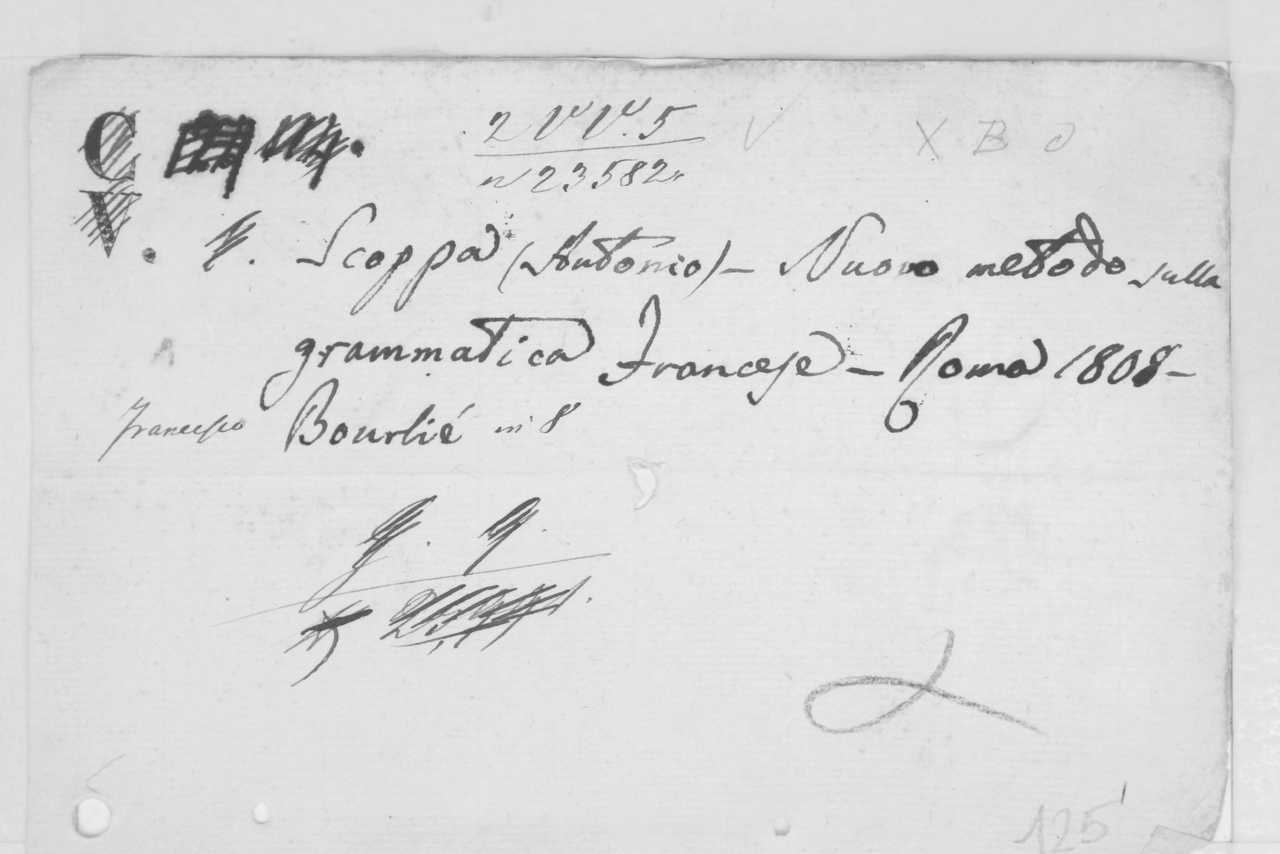 2 VV. 5
V X B O
n 23582
Scoppa (Antonio) – Nuovo metodo sulla
grammatica Francese – Roma 1808 –
Francesco Bourlié in 8°
125